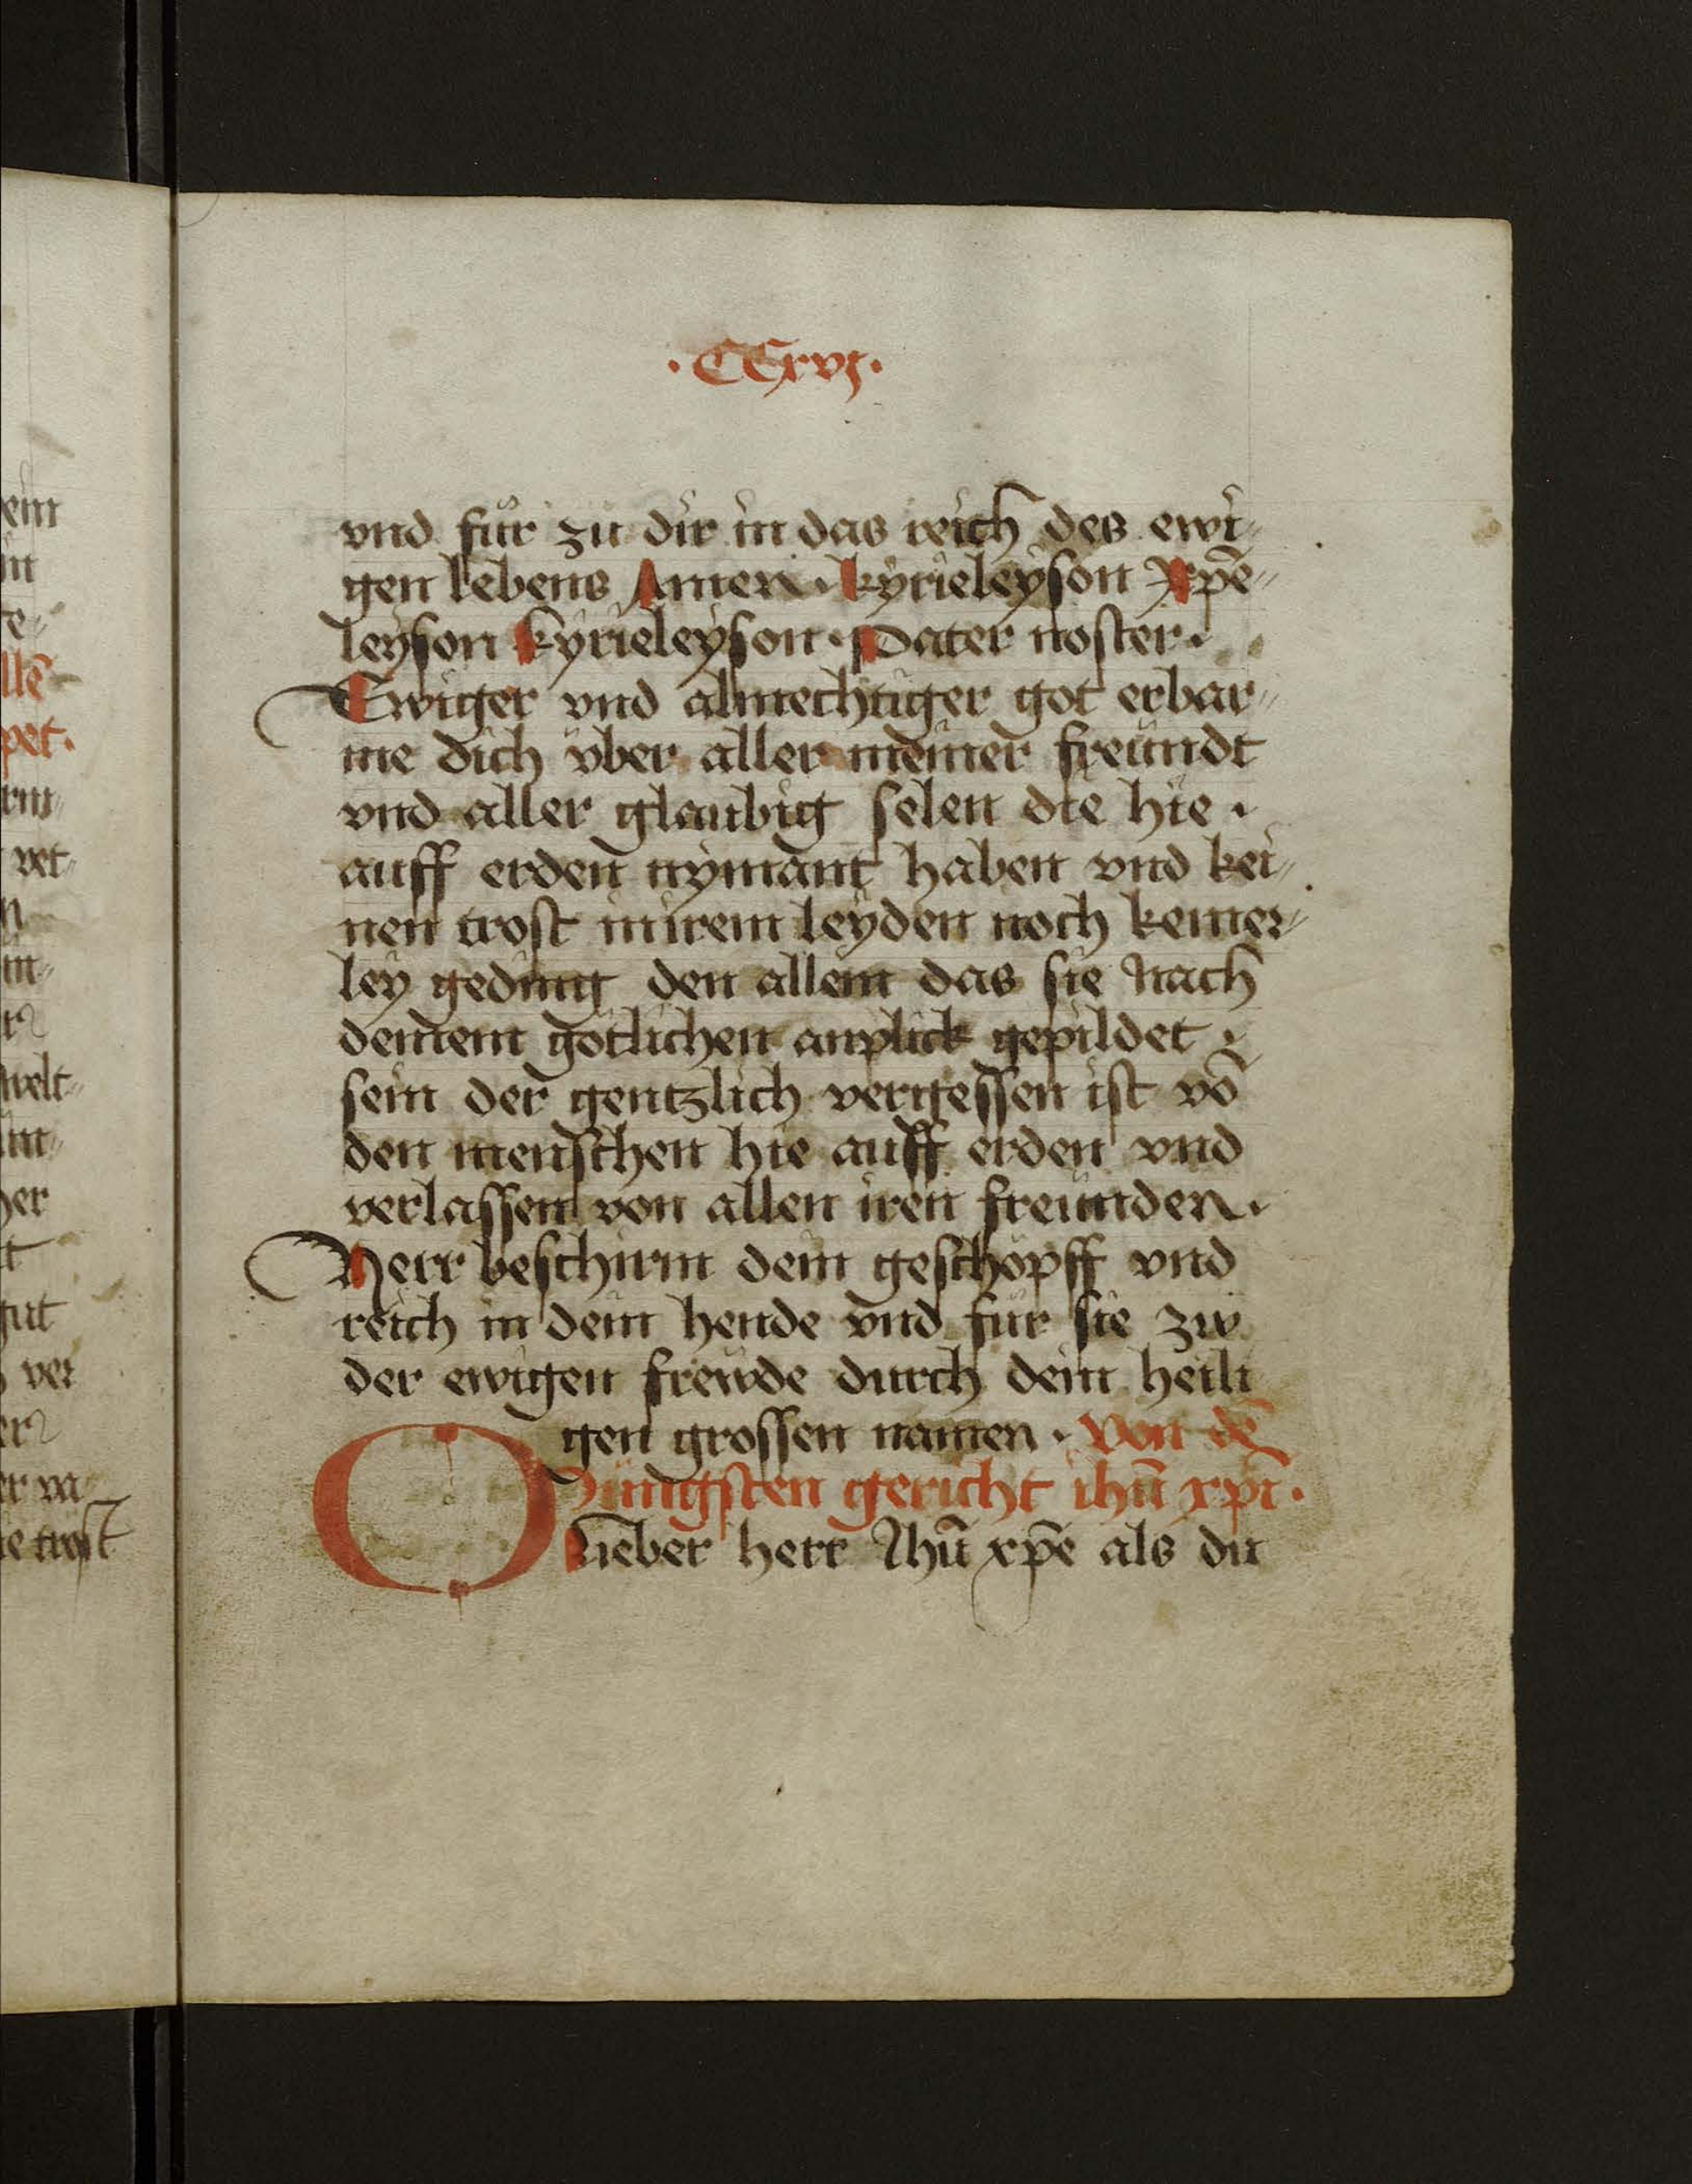 · CCxvj ·
vnd für zu dir in das reich des ewi-
gen lebens Amen · kyrieleyson Xpē-
leyson kyrieleyson · Pater noster ·
Ewiger vnd almechtiger got erbar-
me dich vber aller meiner freündt
vnd aller glaubig selen die hie ·
auff erden nymant haben vnd kei-
nen trost in irem leyden noch keiner-
ley geding den allein das sie nach
deinem götlichen anplick gepildet ·
sein der gentzlich vergessen ist vō
den menschen hie auff erden vnd
verlassen von allen iren freunden ·
Herr beschirm dein geschöpff vnd
reich in dein hende vnd für sie zw
der ewigen frewde durch dein heili
gen grossen namen · Von dē
Jüngsten gericht ihū xpī ·
O lieber herr Jhū xpē als du